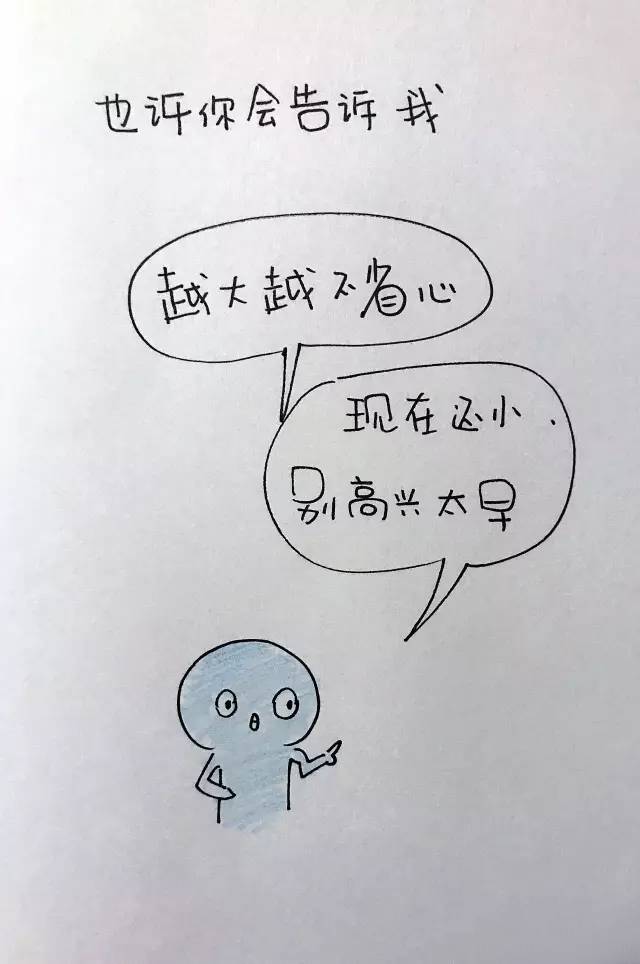 也许你会告诉我
越大越不省心
现在还小.
别高兴太早